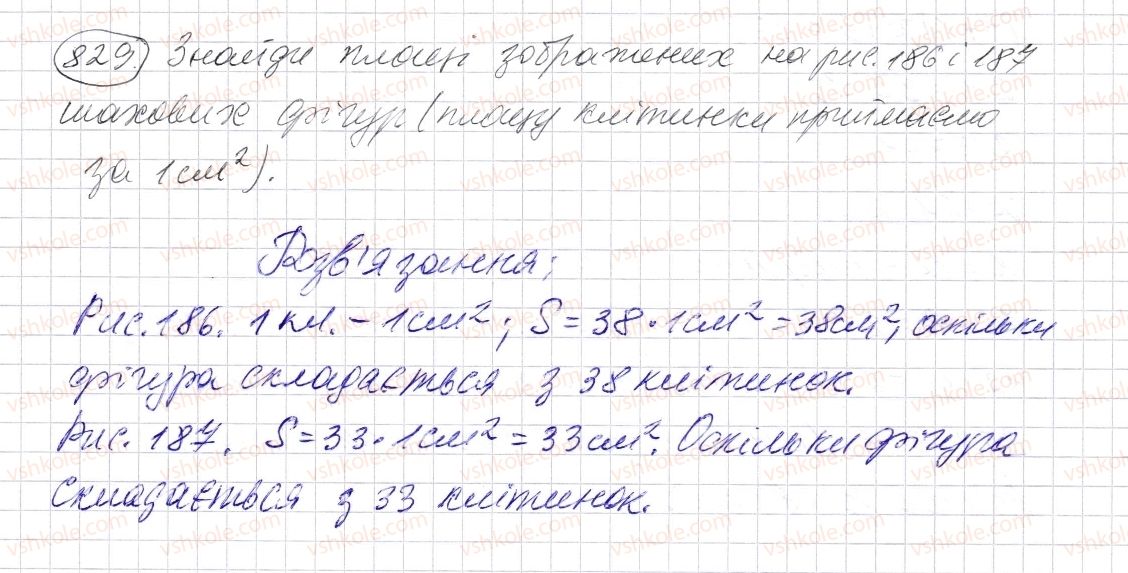 829. Знайди площі зображених на рис. 186 і 187
шахових фігур (площу клітинки приймаємо
за 1 см²).
Розв'язання;
Рис. 186. 1 кл. – 1 см²; S = 38 · 1 см² = 38 см², оскільки
фігура складається з 38 клітинок.
Рис. 187. S = 33 · 1 см² = 33 см². Оскільки фігура
складається з 33 клітинок.